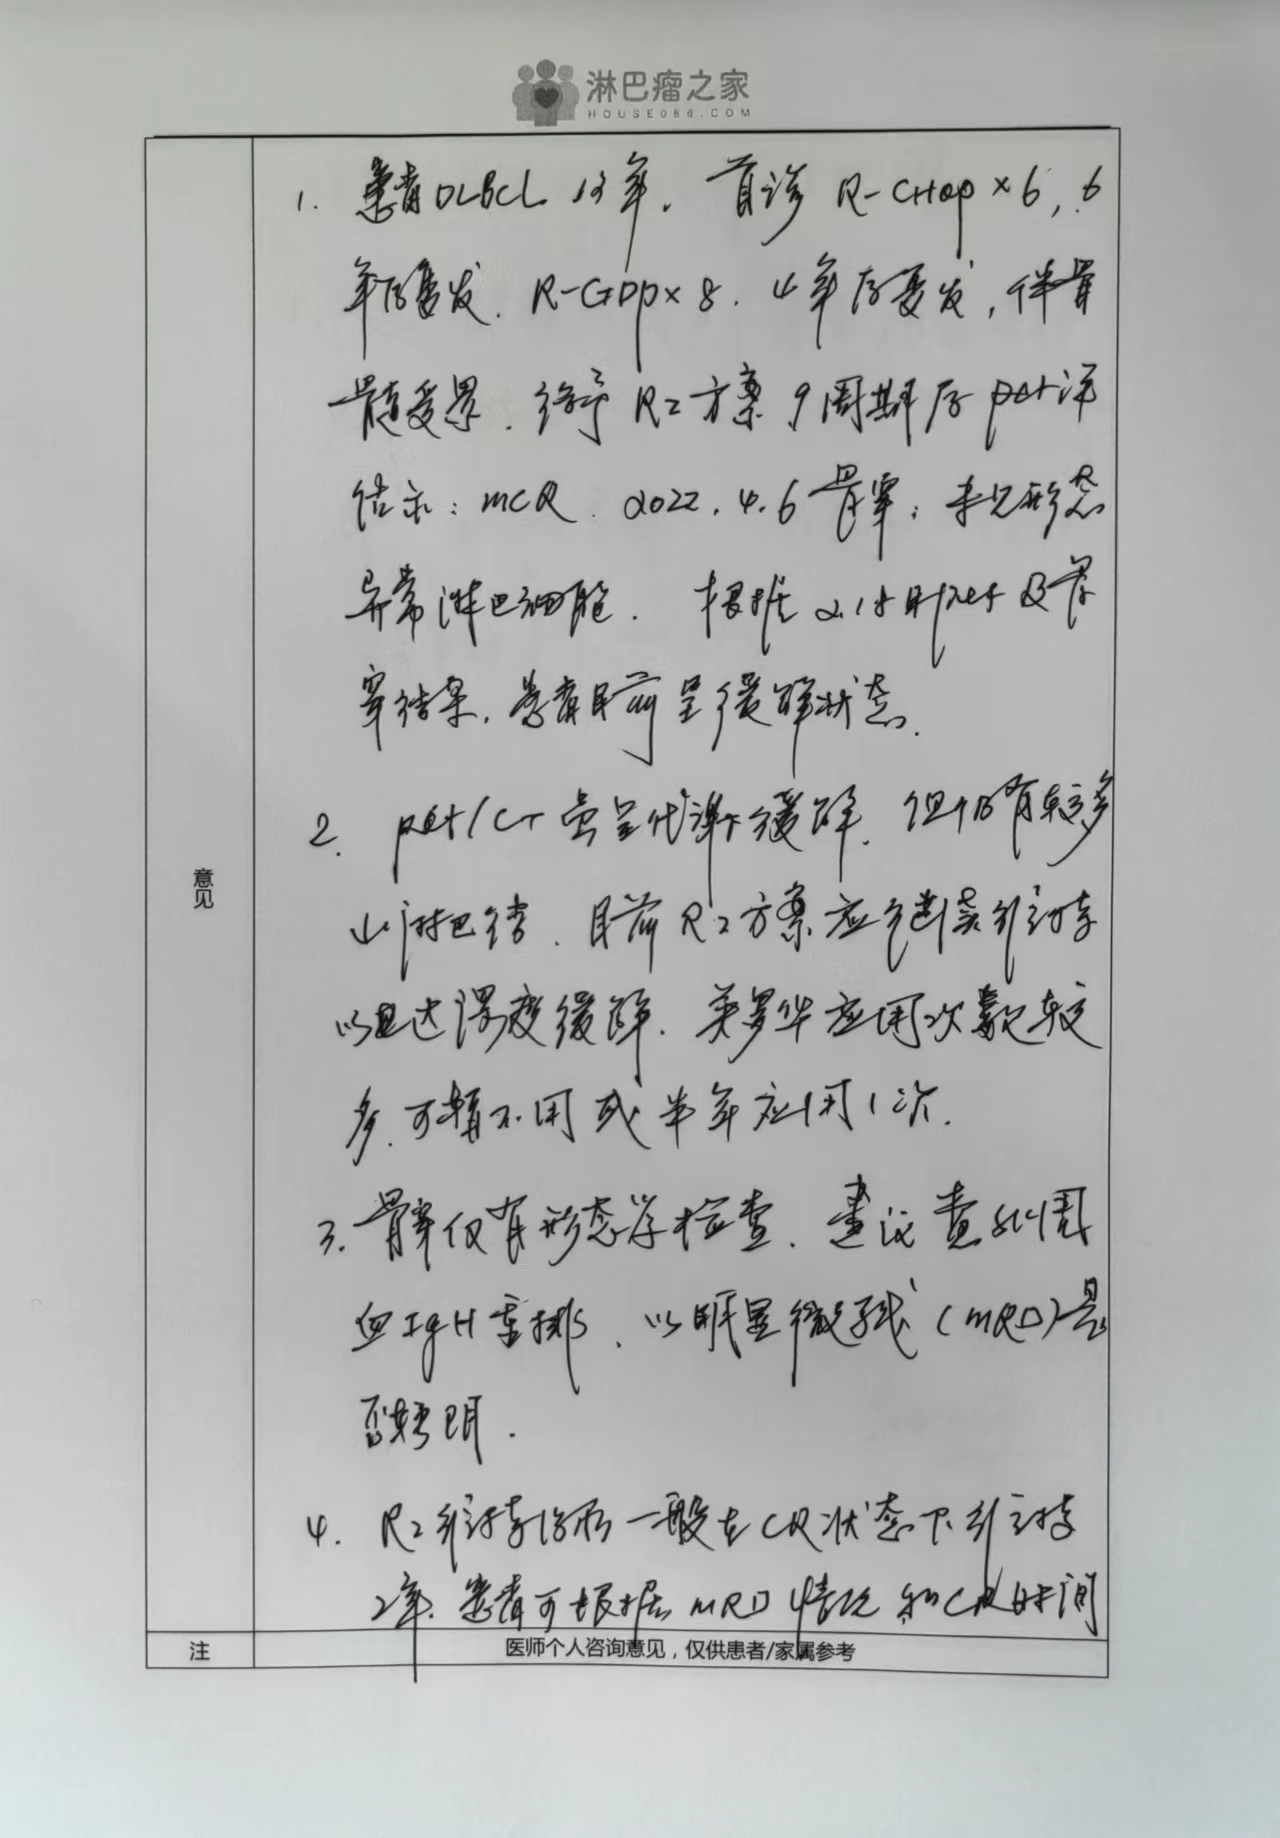 淋巴瘤之家
HOUSE086.COM
1. 患者DLBCL 13年. 首诊 R-CHOP×6, 6
年后复发. R-GDP×8. 4年后复发, 伴骨
髓受累. 给予 R2方案, 9周期后 pet评
估示: mCR. 2022.4.6 骨穿: 未见形态
异常淋巴细胞. 根据 2.18日pet 及骨
穿结果, 患者目前呈缓解状态.
2. pet/CT 虽呈代谢下缓解. 但仍有较多
小淋巴结. 目前R2方案应继续维持
以达深度缓解. 美罗华应用次数较
多. 可暂不用或半年应用1次.
3. 骨穿仅有形态学检查. 建议查外周
血IgH重排. 以明显微残 (MRD) 是
否转阴.
4. R2维持治疗一般在CR状态下维持
2年. 患者可根据MRD情况和CR时间
意见
注
医师个人咨询意见，仅供患者/家属参考